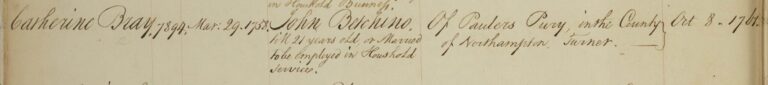 in Houshold Business.
Catherine Bray, 7894, Mar: 29. 1758, John Betchino, Of Paulers Pury, in the County Oct 8 - 1761.
till 21 years old, or Married of Northampton, Turner.
to be employed in Houshold
Service.